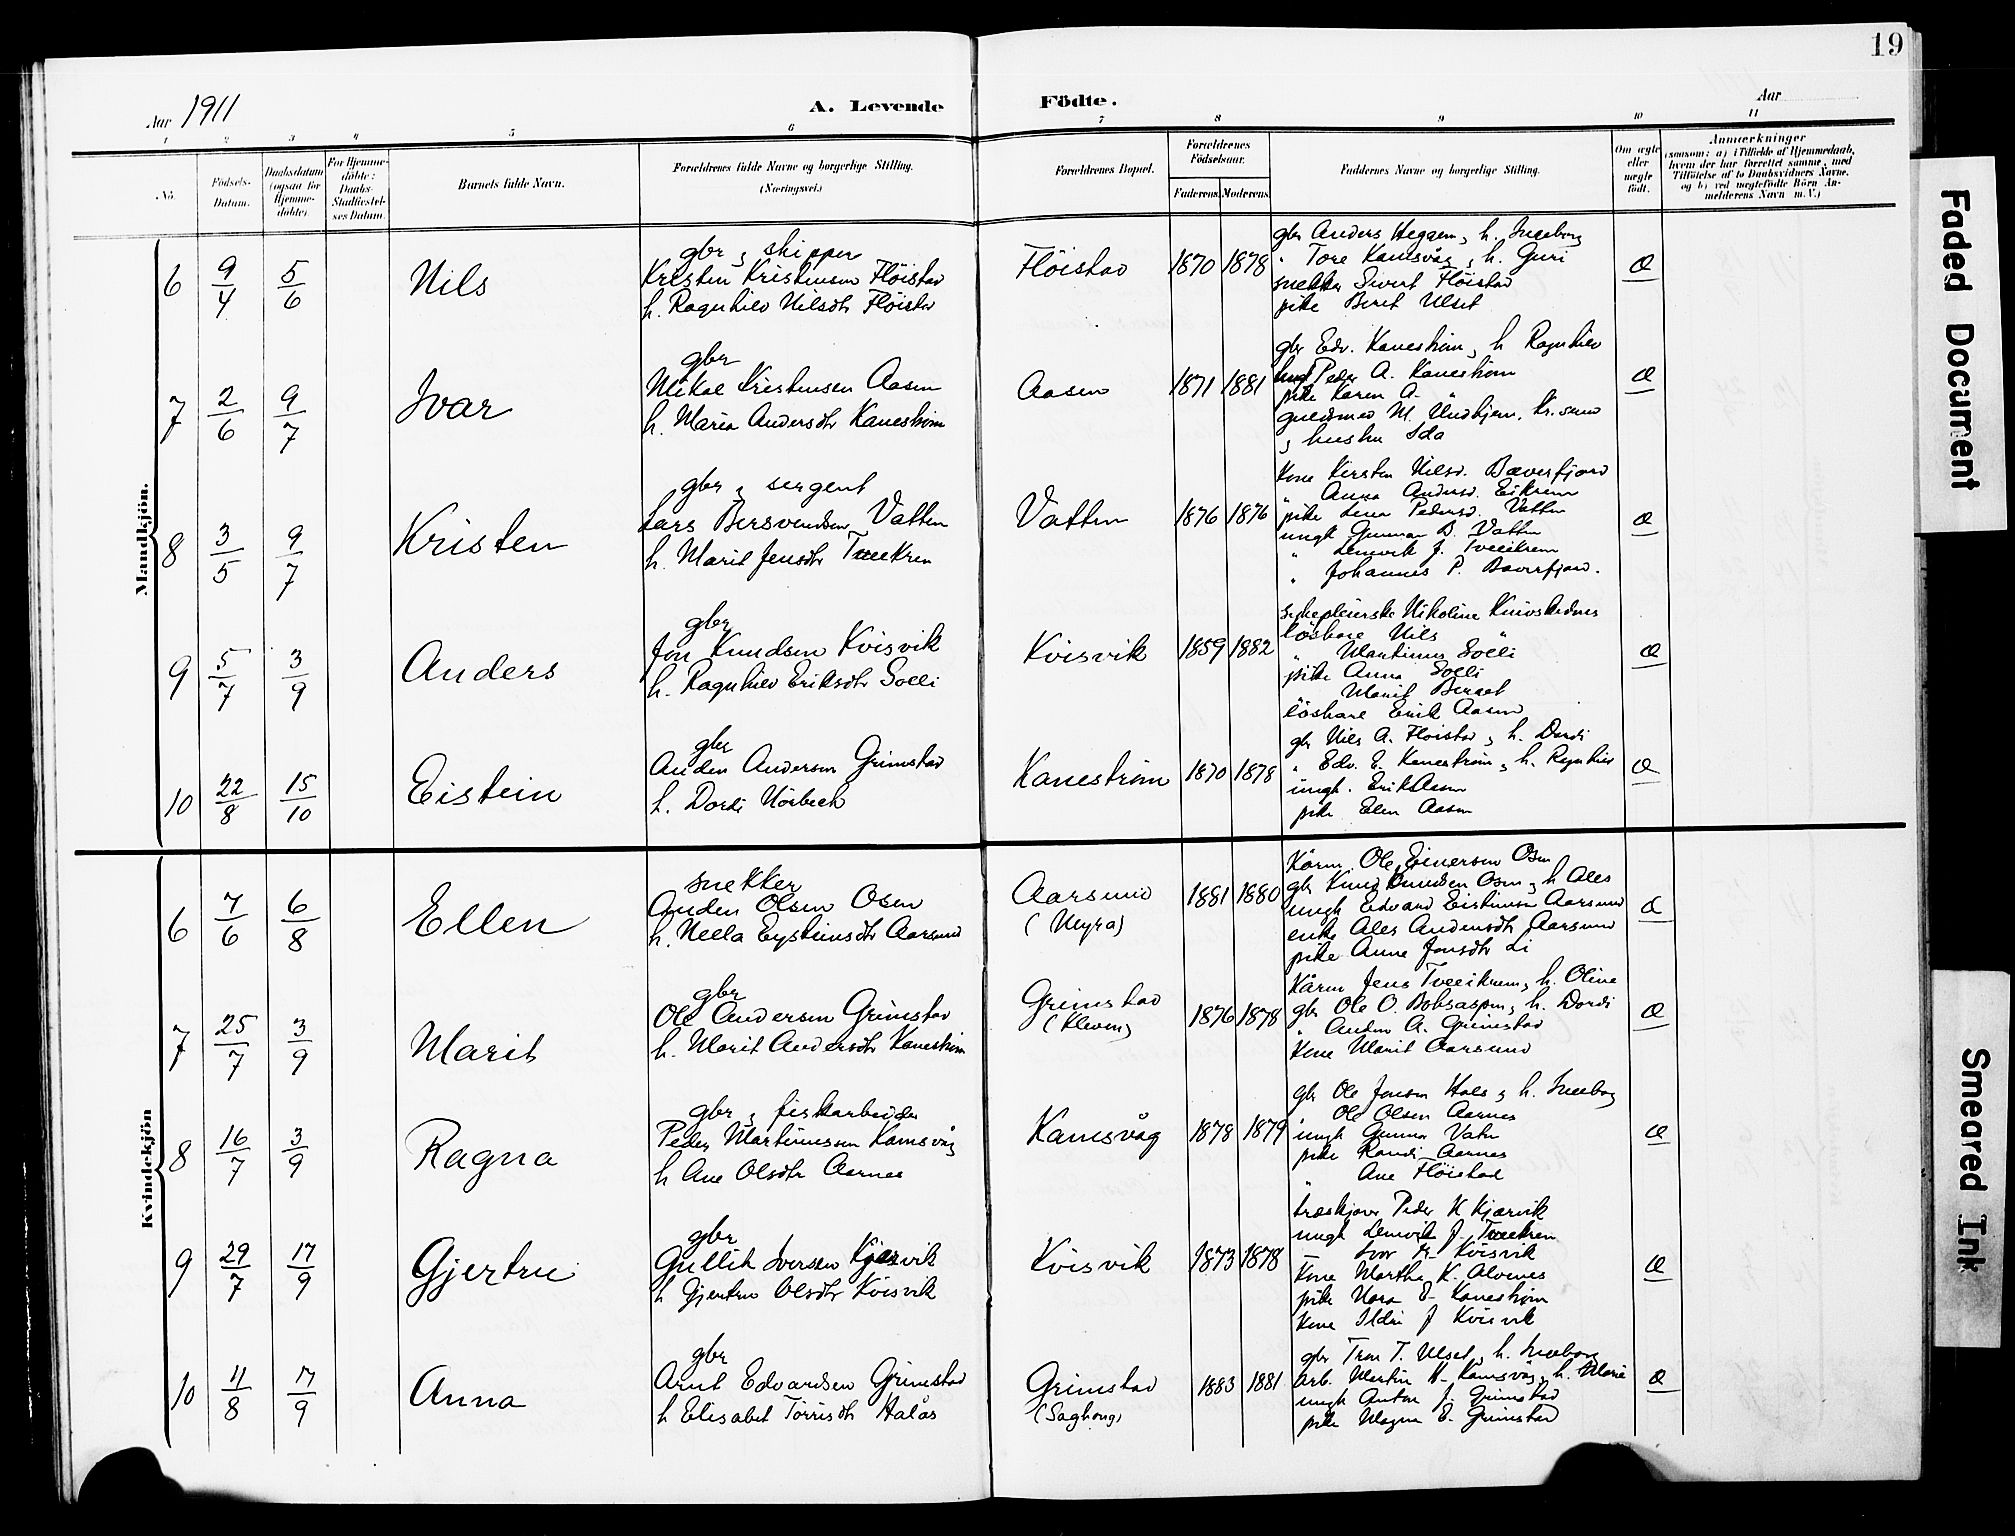 19
Aar 1911
A. Levende
Födte.
Aar
1 2 3 4 5 6 7 8 9 10 11
No.
Födsels-
Datum.
Daabsdatum
(ogsaa for
Hjemme-
döbte).
For Hjemme-
döbte:
Daabs-
Stadfæstel-
ses Datum.
Barnets fulde Navn.
Forældrenes fulde Navne og borgerlige Stilling.
(Næringsvei.)
Forældrenes Bopæl.
Forældrenes
Födselsaar.
Faderens
Moderens
Faddernes Navne og borgerlige Stilling.
Om ægte
eller
uægte
født.
Anmærkninger
(saasom: a) i Tilfælde af Hjemmedaab,
hvem der har forrettet samme, med
Tilföielse af to Daabsvidners Navne.
og b) ved uægtefödte Börn An-
melderens Navn m.V.)
Mandkjön.
6 9/4 5/6 Nils
gbr & skipper
Kristen Kristensen Flöistad
h. Ragnhild Nilsdtr Flöistad
Flöistad 1870 1878
gbr Anders Heggem, h. Ingeborg
" Tore Kamsvåg, h. Guri
snekker Sivert Flöistad
pike Berit Ulset
Æ
7 2/6 9/7 Ivar
gbr
Mikal Kristensen Aasen
h. Maria Andersdtr Kaneström
Aasen 1871 1881
gbr Edv. Kaneström, h Ragnhild
Peder A. Kaneström
pike Karen A. "
guldsmed M. Undhjem, Kr.sund
& hustru Ida
Æ
8 3/5 9/7 Kristen
gbr & sergent
Lars Bersvendsen Vatten
h. Marit Jensdtr Tveekrem
Vatten 1876 1876
Kone Kirsten Nilsd. Bæverfjord
" Anna Andersd. Eikrem
pike Lina Pedersd. Vatten
ungk Gunnar B. Vatten
" Lenvik J. Tveeikrem
" Johannes P. Bæverfjord.
Æ
9 5/7 3/9 Anders
gbr
Jon Knudsen Kvisvik
h. Ragnhild Eriksdtr Solli
Kvisvik 1859 1882
sykepleierske Nikoline
löskare Nils "
" Martinus Solli
pike Anna Solli
" Marit Berget
löskare Erik Aasen
Æ
10 22/8 15/10 Eistein
gbr
Anders Andersen Grimstad
h. Dordi Nörbech
Kaneström 1870 1878
gbr Nils A. Flöistad, h. Dordi
" Edv. E. Kaneström, h. Ragnhild
ungk. Erik Aasen
pike Elen Aasen
Æ
Kvindekjön
6 7/6 6/8 Ellen
snekker
Anders Olsen Osen
h. Nella Eysteinsdtr Aarsund
Aarsund
(Myra)
1881 1880
Kårm. Ole Einersen Osen
gbr Knud Knudsen Osen, h Ales
ungk Edvard Eistensen Aarsund
enke Ales Andersdtr Aarsund
pike Anne Jonsdtr Li
Æ
7 25/7 3/9 Marit
gbr
Ole Andersen Grimstad
h. Marit Andersdtr Kaneström
Grimstad
(Kleven)
1876 1878
Kårm Jens Tveeikrem, h. Oline
gbr Ole O. h. Dordi
" Anders A. Grimstad
Kone Marit Aarsund
Æ
8 16/7 3/9 Ragna
gbr & fiskarbeider
Peder Martinussen Kamsvåg
h Ane Olsdtr Aarnes
Kamsvåg 1878 1879
gbr Ole Jonsen Hals & h. Ingeborg
" Ole Olsen Aarnes
ungk Gunnar Vatn
pike Randi Aarnes
" Ane Flöistad
Æ
9 29/7 17/9 Gjertru
gbr
Gullik Iversen Kjærvik
h Gjertru Olsdtr Kvisvik
Kvisvik 1873 1878
træskjærer Peder K Kjærvik
ungk Lenvik J. Tveekrem
— Ivar Kvisvik
Kone Marthe K. Alvenes
pike Nora E. Kaneström
Kone Ildri J Kvisvik
Æ
10 11/8 17/9 Anna
gbr
Arnt Edvardsen Grimstad
h Elisabet Torrisdtr Halås
Grimstad
(Saghaug)
1883 1881
gbr Tron T. Ulset, h. Ingeborg
Arb. Martin Kamsvåg, h. Marie
ungk Anton J. Grimstad
pike Magna E. Grimstad
Æ
Faded Document
Smeared Ink